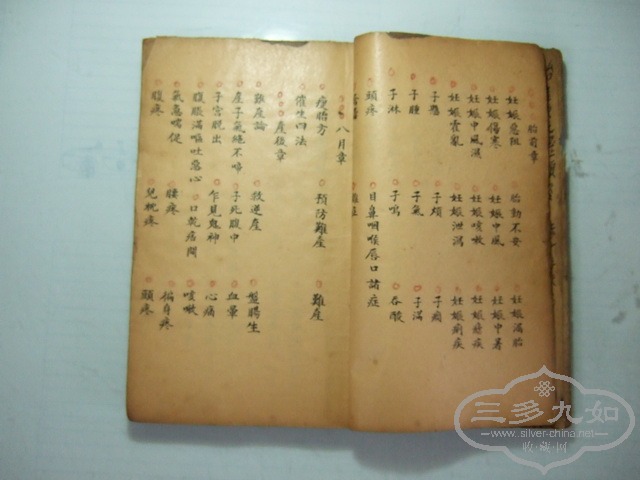 胎前章
妊娠惡阻 胎動不安 妊娠漏胎
妊娠傷寒 妊娠中風 妊娠中暑
妊娠中風濕 妊娠咳嗽 妊娠瘧疾
妊娠霍亂 妊娠泄瀉 妊娠痢疾
子懸 子煩 子癎
子腫 子氣 子滿
子淋 子鳴 吞酸
頭疼 目鼻咽喉唇口諸症
八月章
瘦胎方 預防難產 難產
催生四法
產後章
難產論 救逆產 盤腸生
產子氣絕不啼 子死腹中 血暈
子宮脫出 乍見鬼神 心痛
腹脹滿嘔吐惡心 口乾痞悶 咳嗽
氣急喘促 腰疼 徧身疼
腹疼 兒枕疼 頭疼
三多九如
www.silver-china.net
收·藏·网